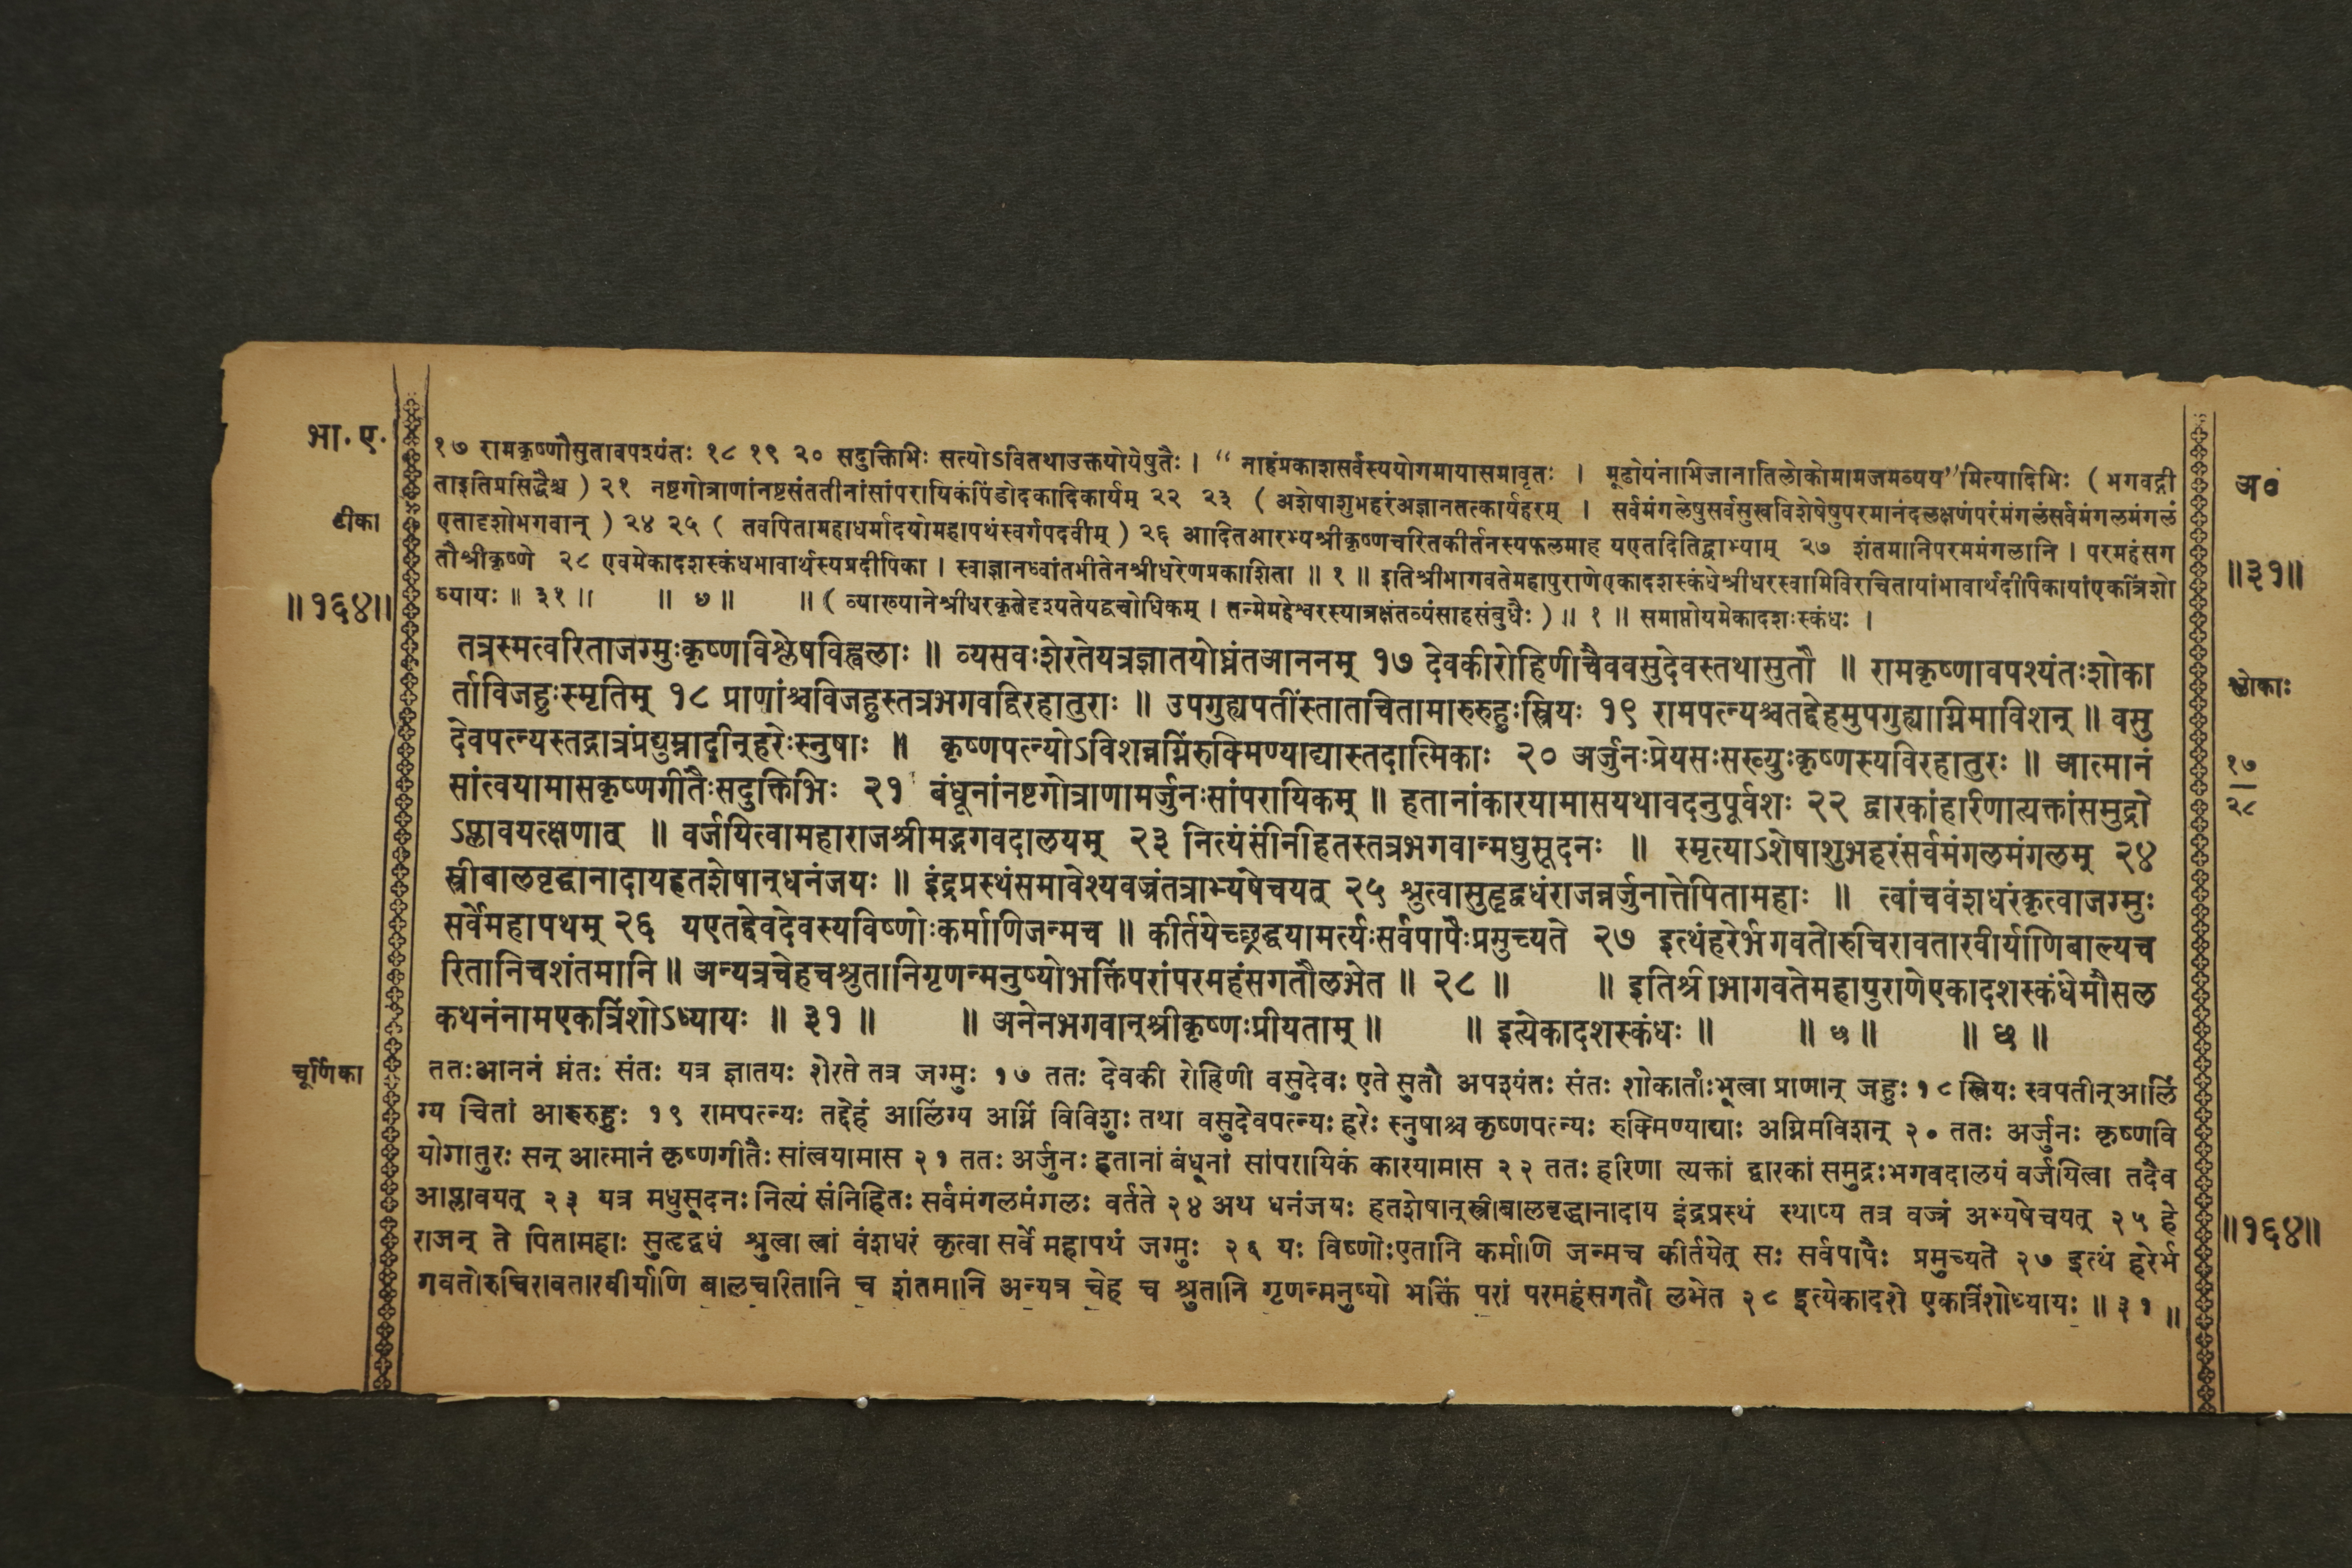 भा. ए.
१७ रामकृष्णौसुतावपश्यंतः १८ १९ २० सदुक्तिभिः सत्योऽवितथाउक्तयोयेषुतैः । “ नाहंप्रकाशःसर्वस्ययोगमायासमावृतः । मूढोयंनाभिजानातिलोकोमामजमव्यय”मित्यादिभिः ( भगवद्गी
अ०
ताइतिप्रसिद्धैश्च ) २१ नष्टगोत्राणांनष्टसंततीनांसांपरायिकंपिंडोदकादिकार्यम् २२ २३ ( अशेषाशुभहरंअज्ञानतत्कार्यहरम् । सर्वमंगलेषुसर्वसुखविशेषेषुपरमानंदलक्षणंपरंमंगलंसर्वमंगलमंगलं
टीका
एतादृशोभगवान् ) २४ २५ ( तवपितामहाधर्मादयोमहापथंस्वर्गपदवीम् ) २६ आदितआरभ्यश्रीकृष्णचरितकीर्तनस्यफलमाह यएतदितिद्वाभ्याम् २७ शंतमानिपरममंगलानि । परमहंसग
तौश्रीकृष्णे २८ एवमेकादशस्कंधभावार्थस्यप्रदीपिका । स्वाज्ञानध्वांतभीतेनश्रीधरेणप्रकाशिता ॥ १ ॥ इतिश्रीभागवतेमहापुराणेएकादशस्कंधेश्रीधरस्वामिविरचितायांभावार्थदीपिकायांएकत्रिंशो
॥३१॥
॥१६४॥
ध्यायः ॥ ३१ ॥ ॥ ७ ॥ ॥ ( व्याख्यानेश्रीधरकृतेदृश्यतेयद्वचोधिकम् । तन्मेमहेश्वरस्यात्रक्षंतव्यंसाहसंबुधैः ) ॥ १ ॥ समाप्तोयमेकादशःस्कंधः ।
तत्रस्मत्वरिताजग्मुःकृष्णविश्लेषविह्वलाः ॥ व्यसवःशेरतेयत्रज्ञातयोघ्नंतआननम् १७ देवकीरोहिणीचैववसुदेवस्तथासुतौ ॥ रामकृष्णावपश्यंतःशोका
श्लोकाः
र्ताविजहुःस्मृतिम् १८ प्राणांश्चविजहुस्तत्रभगवद्विरहातुराः ॥ उपगुह्यपतींस्तातचितामारुरुहुःस्त्रियः १९ रामपत्न्यश्चतद्देहमुपगुह्याग्निमाविशन् ॥ वसु
देवपत्न्यस्तद्गात्रंप्रद्युम्नादीन्हरेःस्नुषाः ॥ कृष्णपत्न्योऽविशन्नग्निंरुक्मिण्याद्यास्तदात्मिकाः २० अर्जुनःप्रेयसःसख्युःकृष्णस्यविरहातुरः ॥ आत्मानं
१७
सांत्वयामासकृष्णगीतैःसदुक्तिभिः २१ बंधूनांनष्टगोत्राणामर्जुनःसांपरायिकम् ॥ हतानांकारयामासयथावदनुपूर्वशः २२ द्वारकांहरिणात्यक्तांसमुद्रो
२८
ऽप्लावयत्क्षणात् ॥ वर्जयित्वामहाराजश्रीमद्भगवदालयम् २३ नित्यंसंनिहितस्तत्रभगवान्मधुसूदनः ॥ स्मृत्याऽशेषाशुभहरंसर्वमंगलमंगलम् २४
स्त्रीबालवृद्धानादायहतशेषान्धनंजयः ॥ इंद्रप्रस्थंसमावेश्यवज्रंतत्राभ्यषेचयत् २५ श्रुत्वासुहृद्वधंराजन्नर्जुनात्तेपितामहाः ॥ त्वांचवंशधरंकृत्वाजग्मुः
सर्वेमहापथम् २६ यएतद्देवदेवस्यविष्णोःकर्माणिजन्मच ॥ कीर्तयेच्छ्रद्धयामर्त्यःसर्वपापैःप्रमुच्यते २७ इत्थंहरेर्भगवतोरुचिरावतारवीर्याणिबाल्यच
रितानिचशंतमानि ॥ अन्यत्रचेहचश्रुतानिगृणन्मनुष्योभक्तिंपरांपरमहंसगतौलभेत ॥ २८ ॥ ॥ इतिश्रीभागवतेमहापुराणेएकादशस्कंधेमौसल
कथनंनामएकत्रिंशोऽध्यायः ॥ ३१ ॥ ॥ अनेनभगवान्श्रीकृष्णःप्रीयताम् ॥ ॥ इत्येकादशस्कंधः ॥ ॥ ७ ॥ ॥ छ ॥
चूर्णिका
ततःआननं घ्नंतः संतः यत्र ज्ञातयः शेरते तत्र जग्मुः १७ ततः देवकी रोहिणी वसुदेवः एते सुतौ अपश्यंतः संतः शोकार्ताःभूत्वा प्राणान् जहुः १८ स्त्रियः स्वपतीन्आलिं
ग्य चितां आरुरुहुः १९ रामपत्न्यः तद्देहं आलिंग्य अग्निं विविशुः तथा वसुदेवपत्न्यः हरेः स्नुषाश्च कृष्णपत्न्यः रुक्मिण्याद्याः अग्निमविशन् २० ततः अर्जुनः कृष्णवि
योगातुरः सन् आत्मानं कृष्णगीतैः सांत्वयामास २१ ततः अर्जुनः हतानां बंधूनां सांपरायिकं कारयामास २२ ततः हरिणा त्यक्तां द्वारकां समुद्रःभगवदालयं वर्जयित्वा तदैव
आप्लावयत् २३ यत्र मधुसूदनः नित्यं संनिहितः सर्वमंगलमंगलः वर्तते २४ अथ धनंजयः हतशेषान्स्त्रीबालवृद्धानादाय इंद्रप्रस्थं स्थाप्य तत्र वज्रं अभ्यषेचयत् २५ हे
॥१६४॥
राजन् ते पितामहाः सुहृद्वधं श्रुत्वा त्वां वंशधरं कृत्वा सर्वे महापथं जग्मुः २६ यः विष्णोःएतानि कर्माणि जन्मच कीर्तयेत् सः सर्वपापैः प्रमुच्यते २७ इत्थं हरेर्भ
गवतोरुचिरावतारवीर्याणि बालचरितानि च शंतमानि अन्यत्र चेह च श्रुतानि गृणन्मनुष्यो भक्तिं परां परमहंसगतौ लभेत २८ इत्येकादशे एकत्रिंशोध्यायः ॥ ३१ ॥